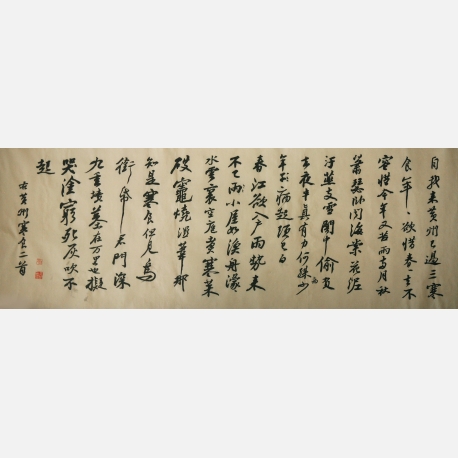 自我来黄州已過三寒
食年々欲惜春々去不
容惜今年又苦雨兩月秋
蕭瑟卧聞海棠花泥
汙燕支雪闇中偷負
去夜半真有力何殊少
年子病起頭已白
春江欲入戶雨勢来
不已雨小屋如漁舟濛々
水雲裏空庖煮寒菜
破竈燒濕葦那
知是寒食但見烏
銜帋君門深
九重墳墓在万里也擬
哭塗窮死灰吹不
起
右黄州寒食二首